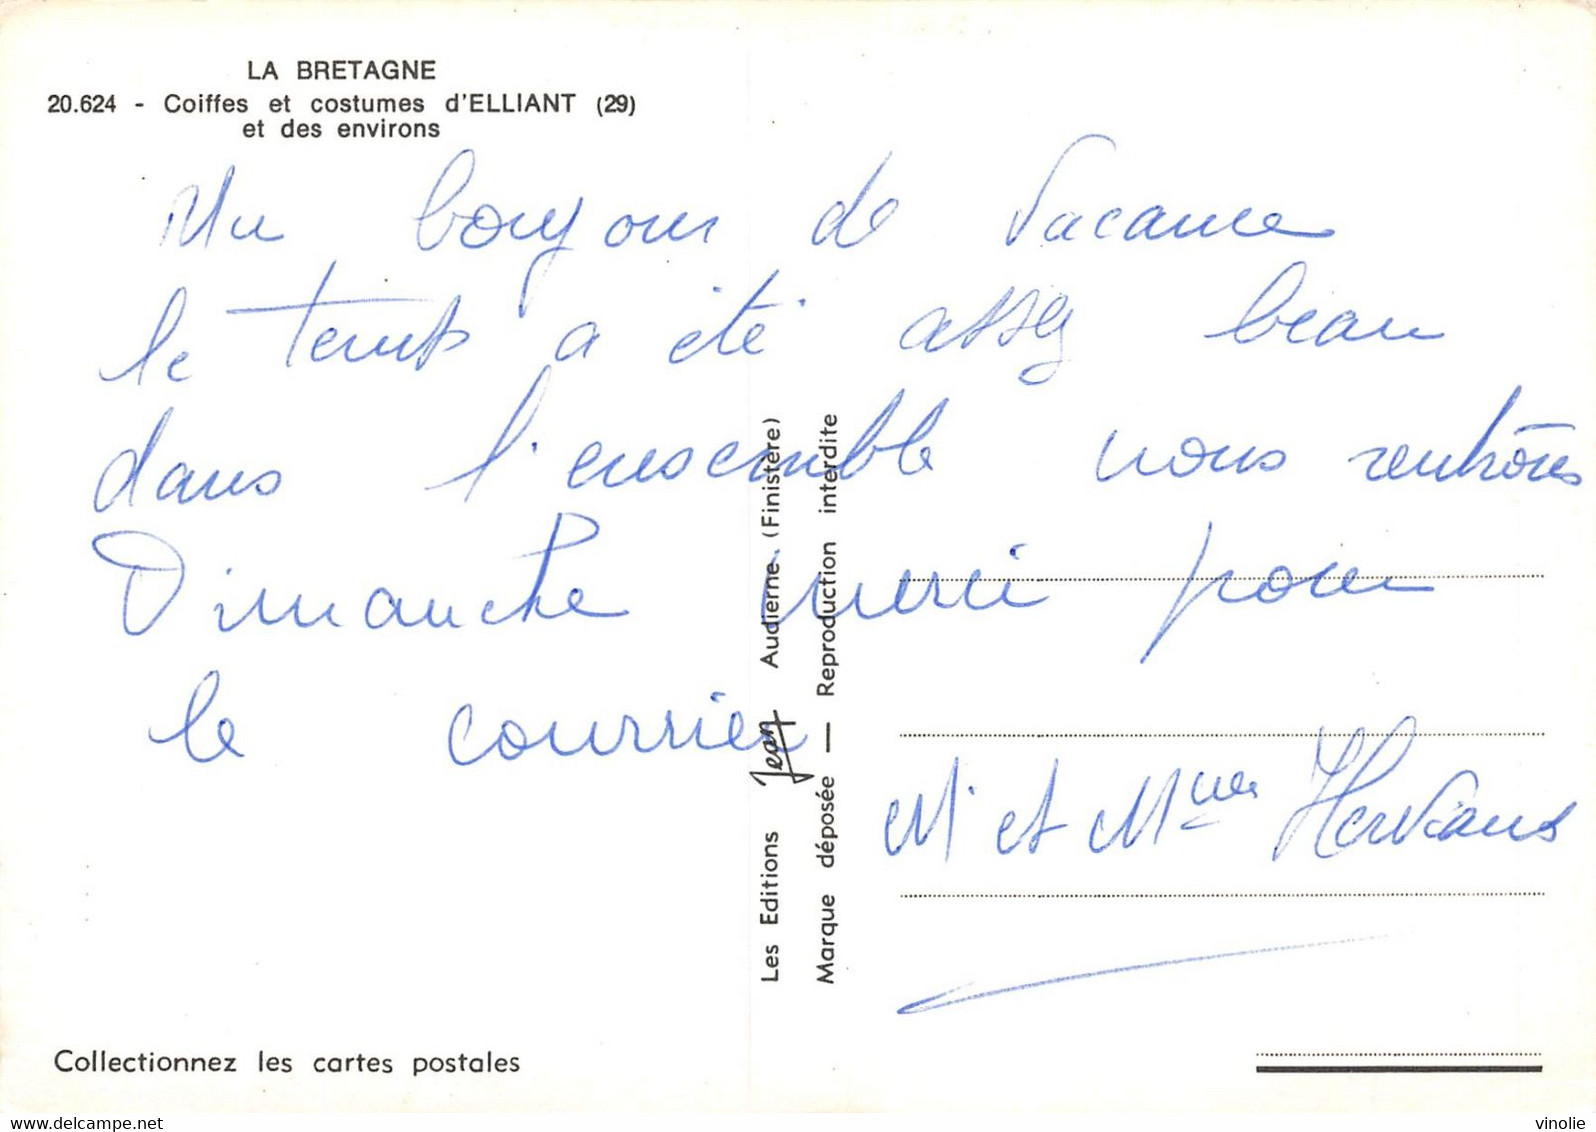 LA BRETAGNE
20.624 - Coiffes et costumes d'ELLIANT (29)
et des environs
Un bonjour de Vacance
le temps a été assez beau
dans l'ensemble nous rentrons
Dimanche merci pour
le courrier
M. et Mme
Les Editions Jean Audierne (Finistère)
Marque déposée — Reproduction interdite
Collectionnez les cartes postales
www.delcampe.net
vinolie